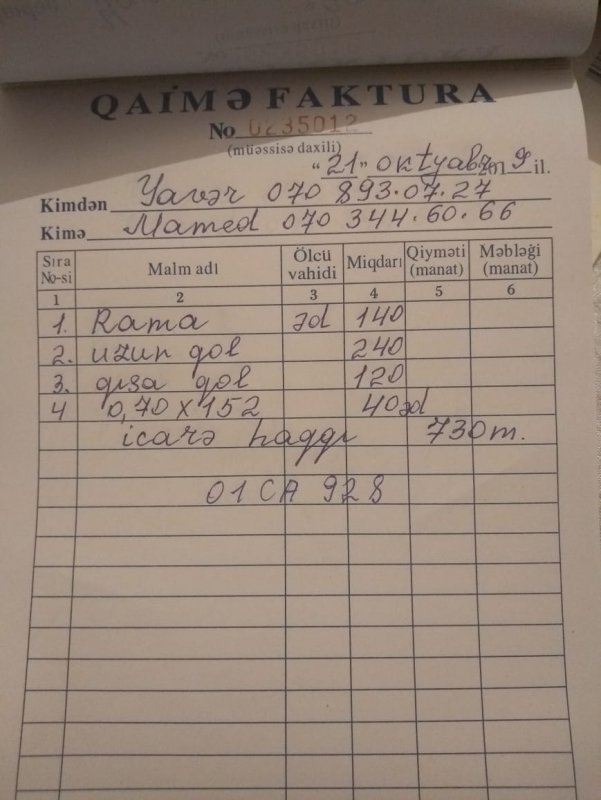 QAİMƏ FAKTURA
No 0235012
(müəssisə daxili)
"21" oktyabr 2019 il.
Kimdən Yavər 070 893.07.27
Kimə Mamed 070 344.60.66
Sıra No-si Malın adı Ölcü vahidi Miqdarı Qiyməti (manat) Məbləği (manat)
1 2 3 4 5 6
1. Rama əd 140
2. uzun qol 240
3. qısa qol 120
4 0,70 x 152 40 əd
icarə haqqı 730 m.
01 CA 928